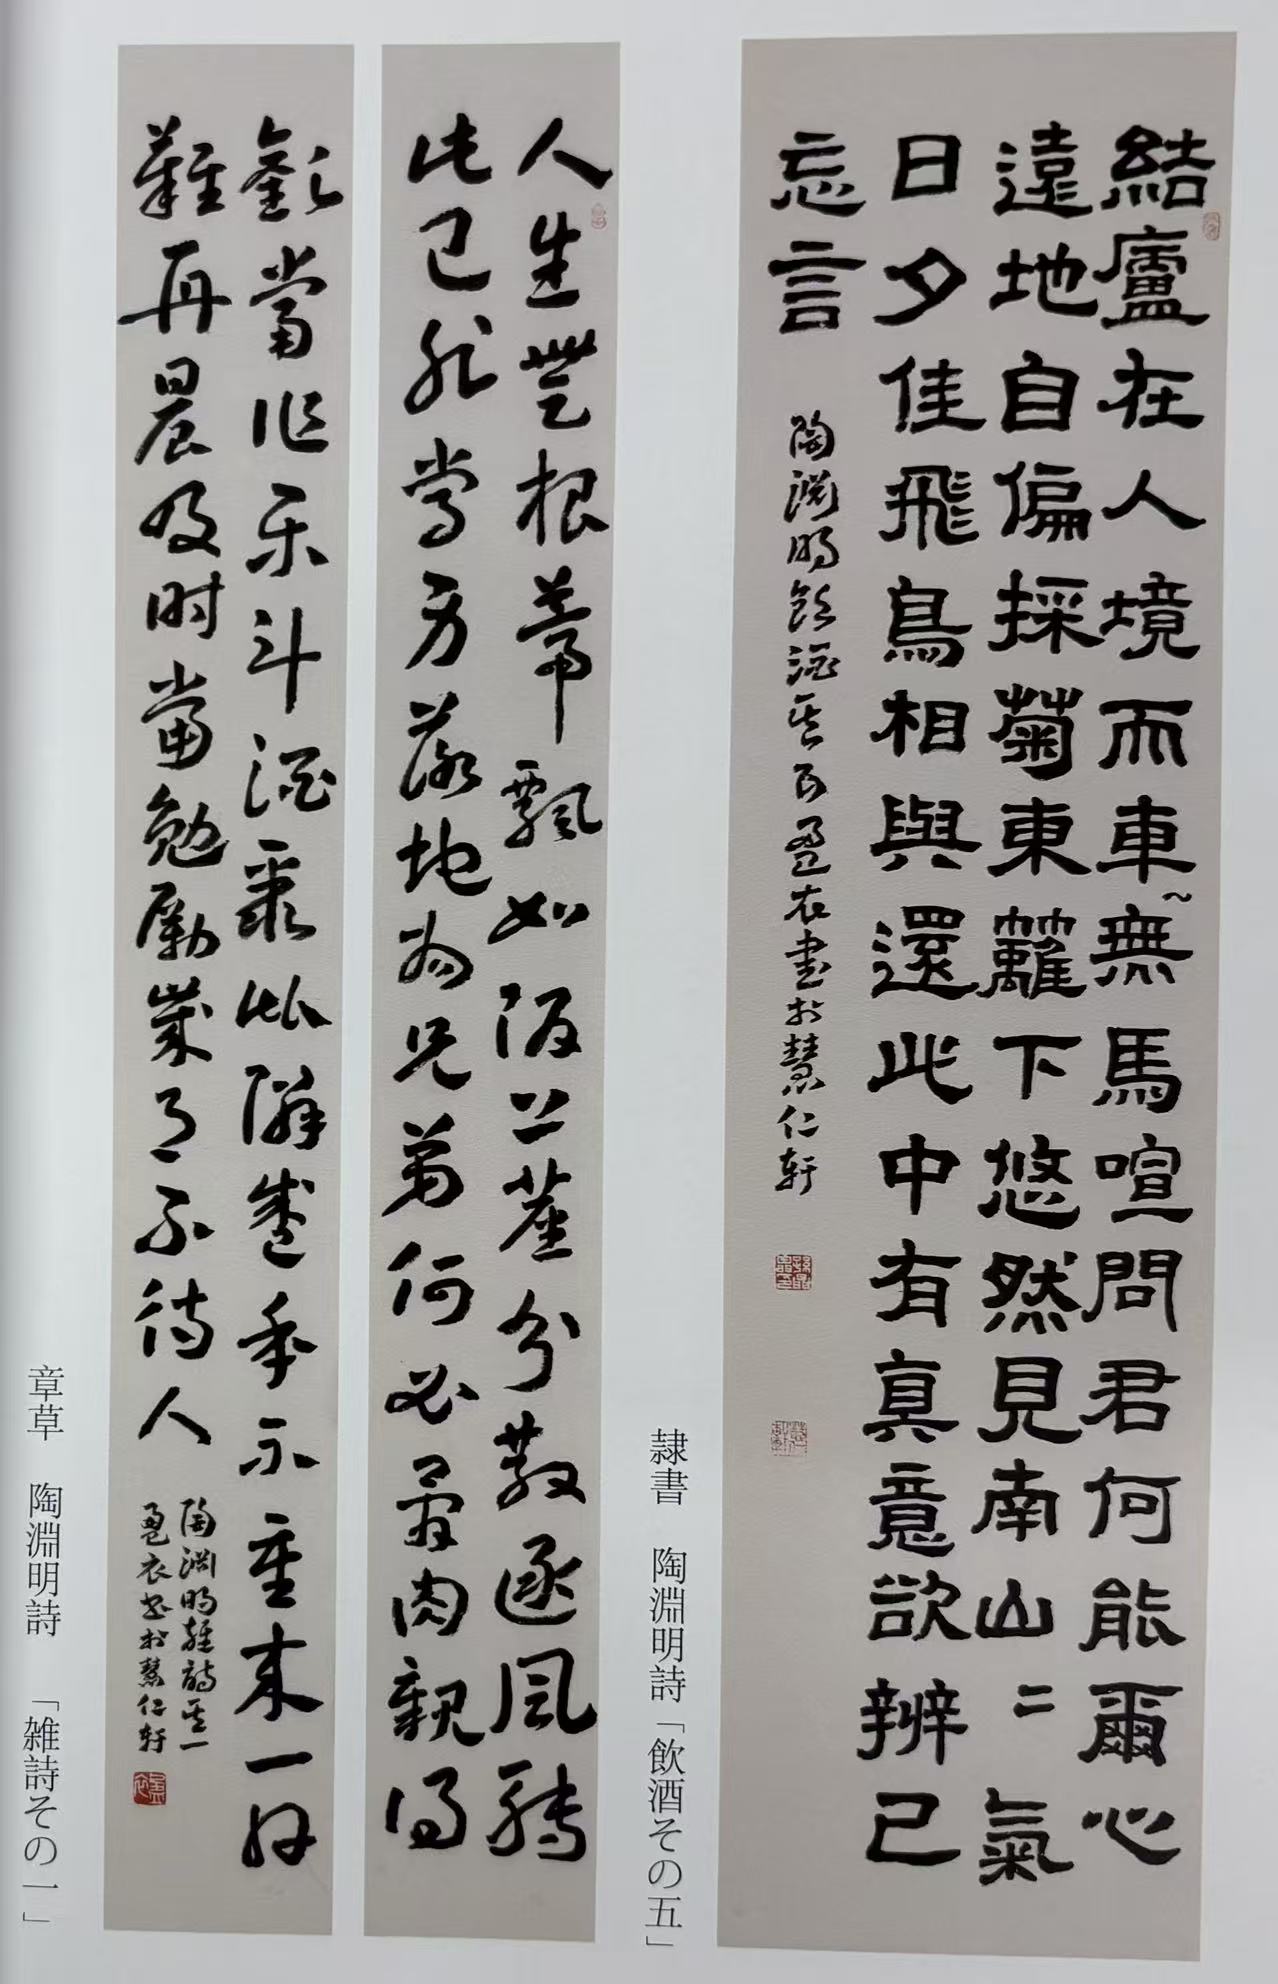 結廬在人境而車~無馬喧問君何能爾心
遠地自偏採菊東籬下悠然見南山〻氣
日夕佳飛鳥相與還此中有真意欲辨已
忘言
陶淵明飲酒其五盈衣書於慧仁軒
隷書 陶淵明詩「飲酒その五」
人生無根蒂飄如陌上塵分散逐風轉
此已非常身落地為兄弟何必骨肉親得
歡當作樂斗酒聚比隣盛年不重来一日
難再晨及時當勉勵歲月不待人
陶淵明雜詩其一
盈衣書於慧仁軒
章草 陶淵明詩 「雑詩その一」